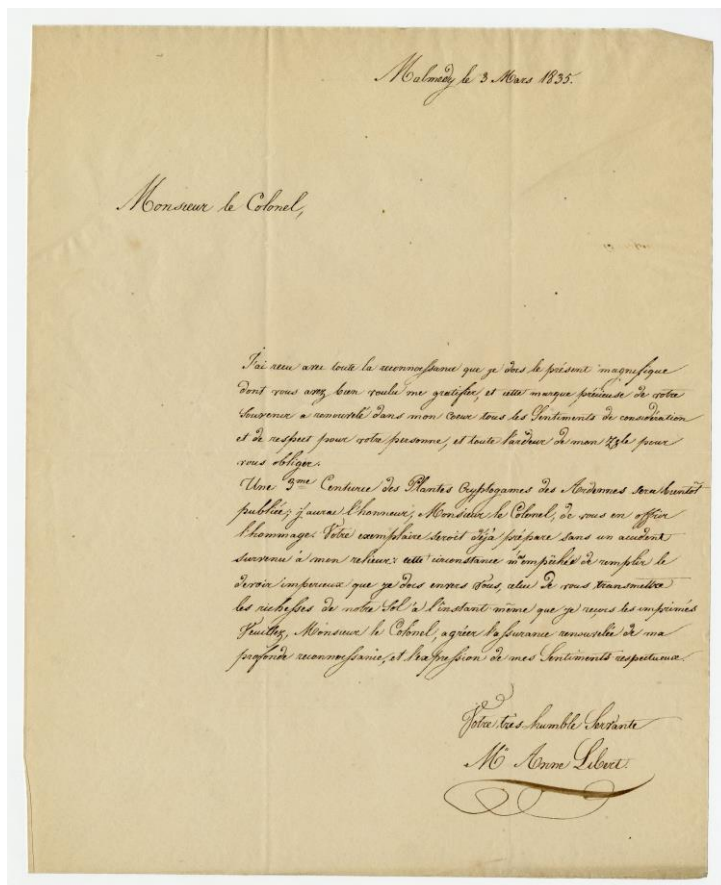 Malmedy le 3 Mars 1835.
Monsieur le Colonel,
J'ai recu avec toute la reconnoissance que je dois le présent magnifique
dont vous avez bien voulu me gratifier, et cette marque précieuse de votre
Souvenir a renouvelé dans mon Cœur tous les Sentiments de considération
et de respect pour votre personne, et toute l'ardeur de mon Zèle pour
vous obliger.
Une 3me Centurie des Plantes Cryptogames des Ardennes sera bientôt
publiée; j'aurai l'honneur, Monsieur le Colonel, de vous en offrir
l'hommage. Votre exemplaire seroit déjà préparé sans un accident
survenu à mon relieur: cette circonstance m'empêche de remplir le
devoir imperieux que je dois envers Vous, celui de vous transmettre
les richesses de notre Sol à l'instant même que je reçus les imprimés
Veuillez, Monsieur le Colonel, agréer l'assurance renouvelée de ma
profonde reconnoissance, et l'expression de mes Sentiments respectueux.
Votre très humble Servante
Me Anne Libert.